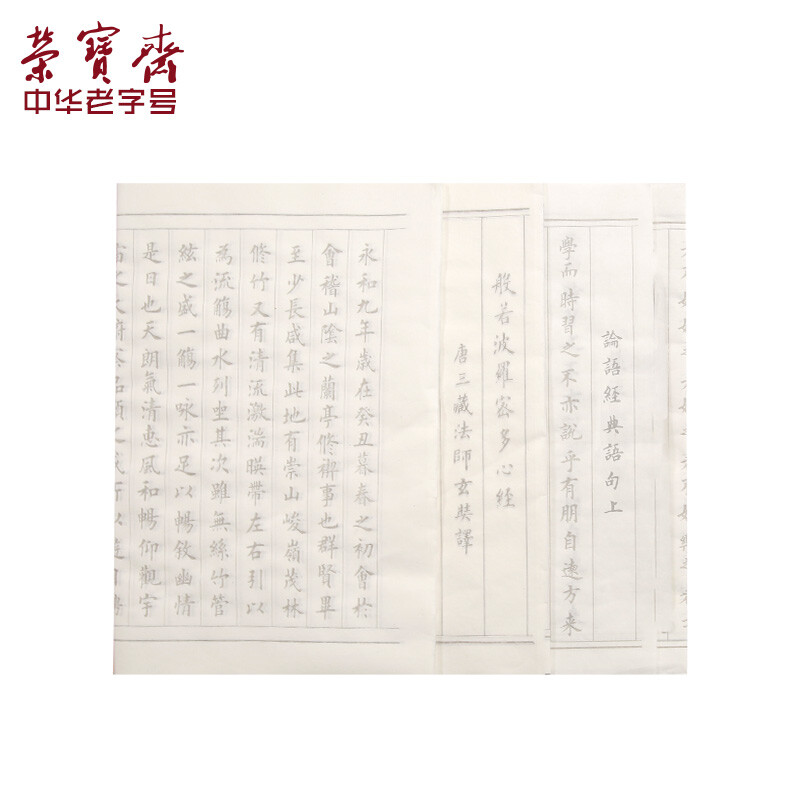 榮寶齋
中华老字号
永和九年歲在癸丑暮春之初會於
會稽山陰之蘭亭修禊事也群賢畢
至少長咸集此地有崇山峻嶺茂林
修竹又有清流激湍暎帶左右引以
為流觴曲水列坐其次雖無絲竹管
絃之盛一觴一詠亦足以暢敘幽情
是日也天朗氣清惠風和暢仰觀宇
般若波羅蜜多心經
唐三藏法師玄奘譯
論語經典語句上
學而時習之不亦說乎有朋自遠方來